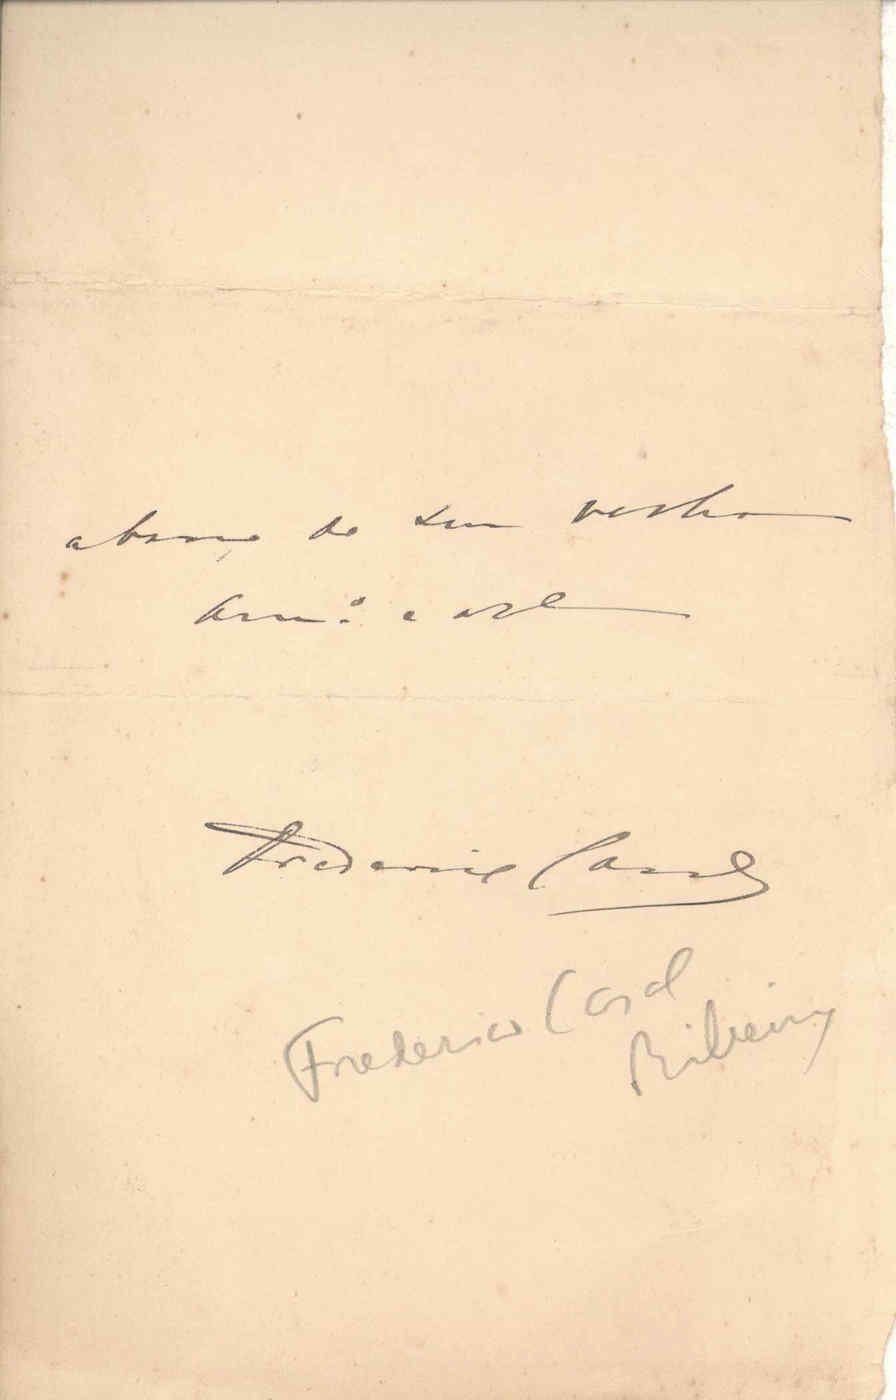 abraço do seu velho
Am.º e
Frederico Casal
Frederico Casal
Ribeiro